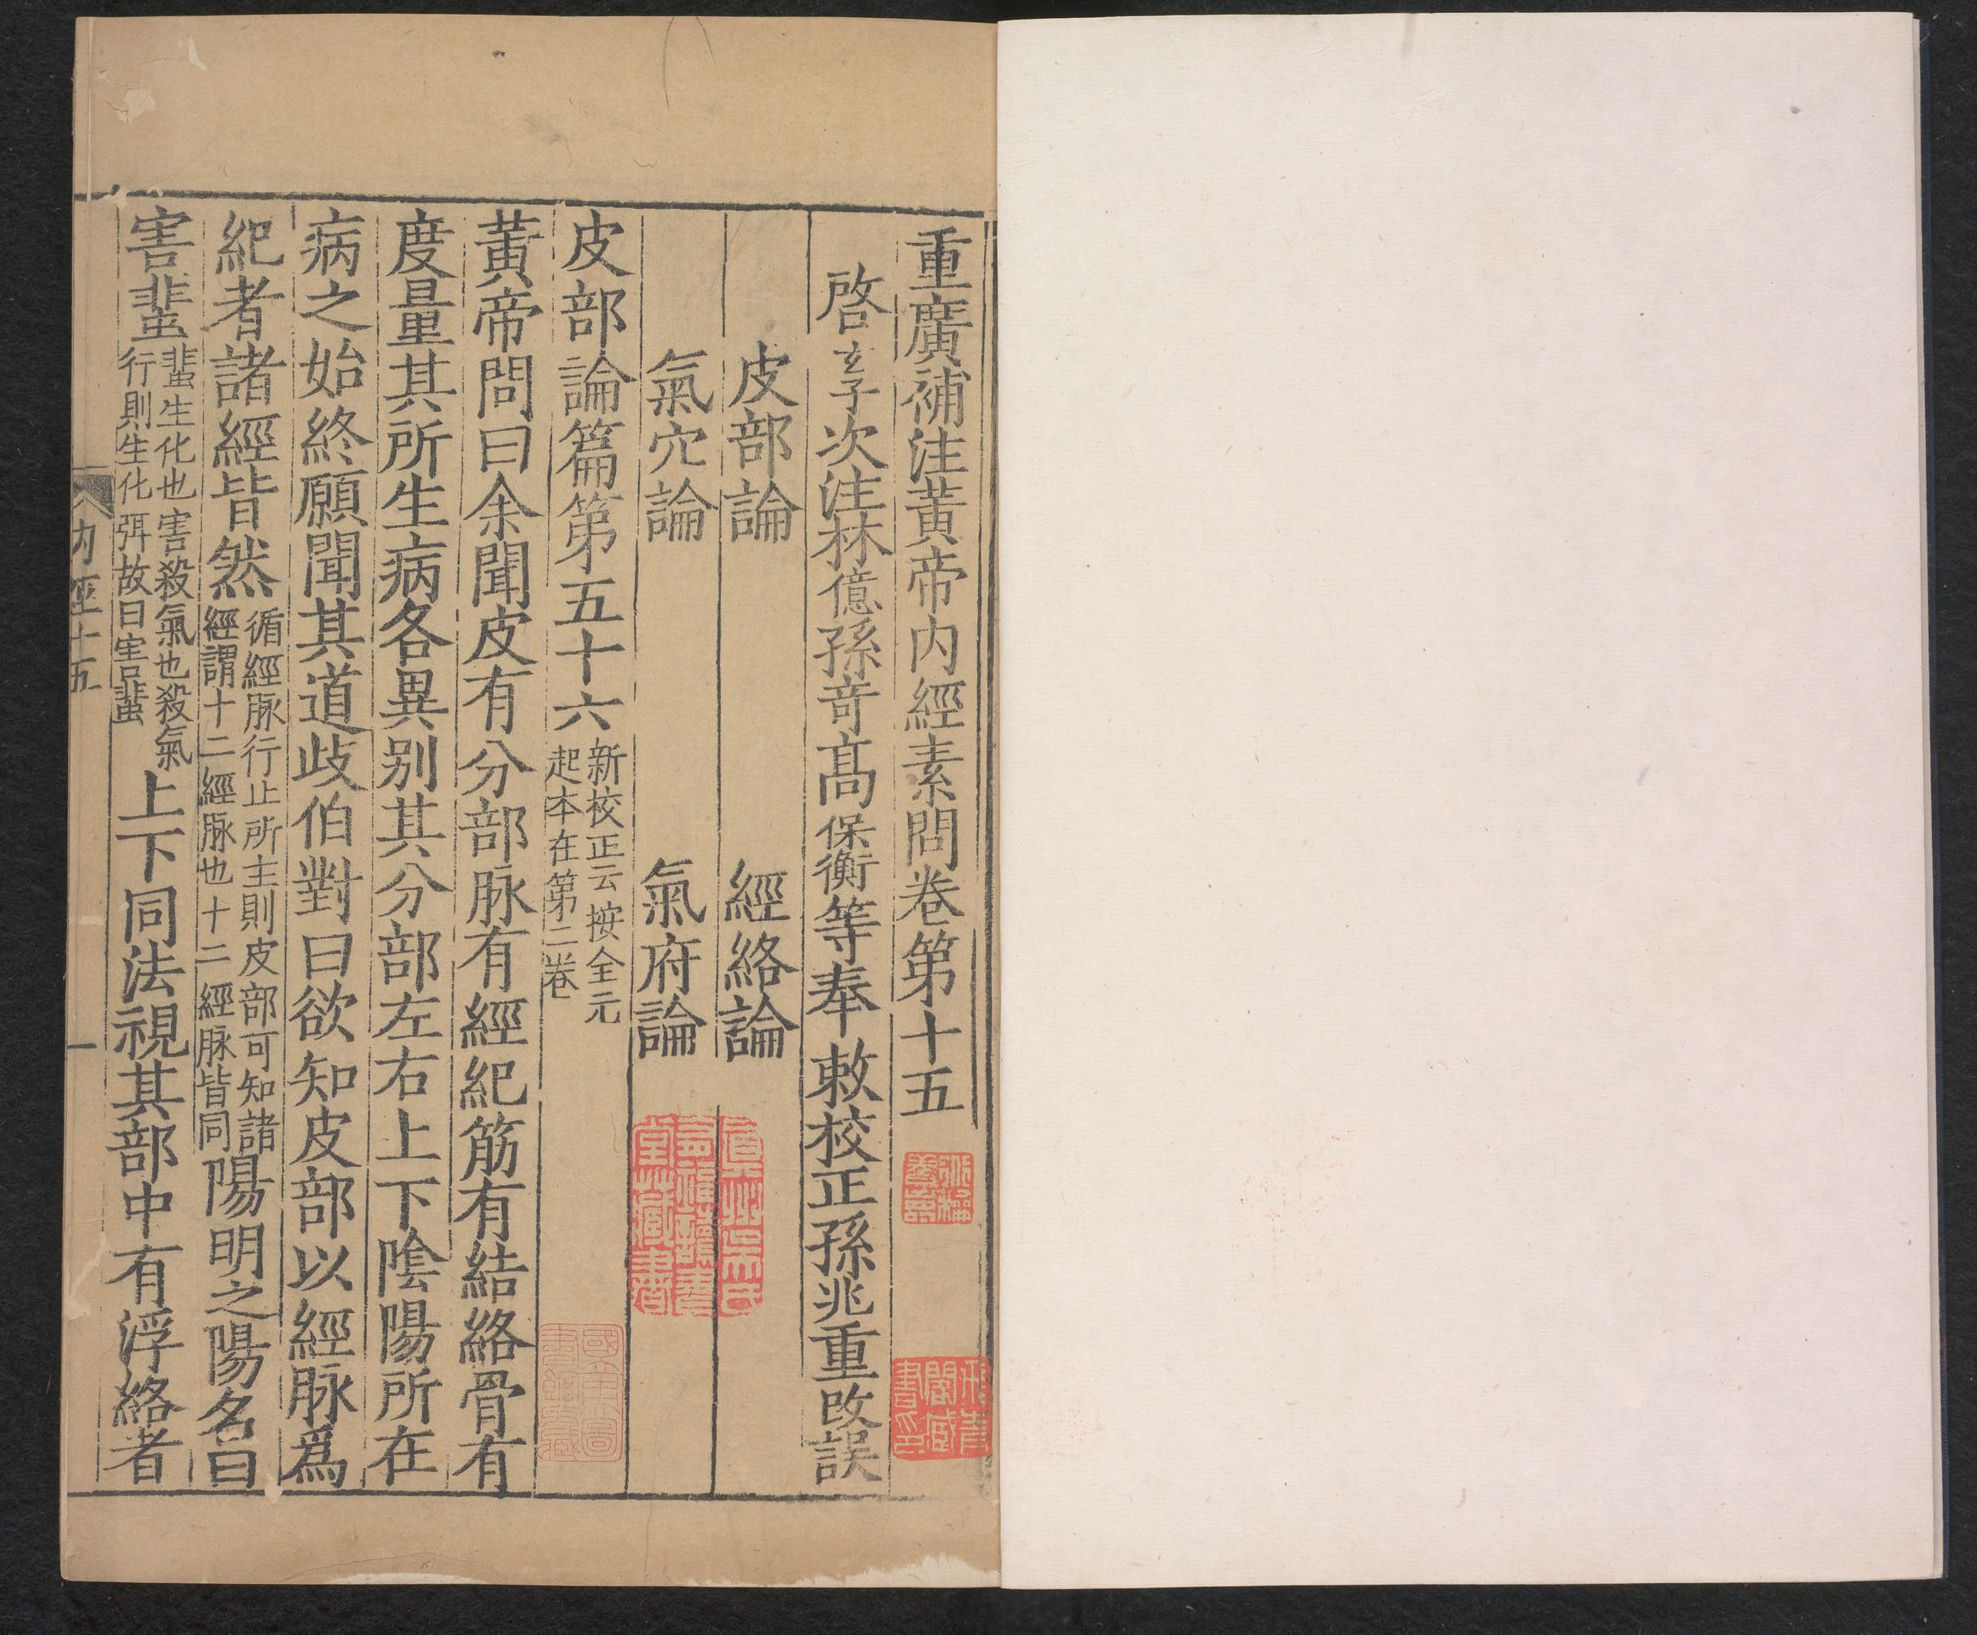 重廣補注黃帝内經素問卷第十五
啓玄子次注林億孫奇髙保衡等奉敕校正孫兆重改誤
皮部論
經絡論
氣穴論
氣府論
皮部論篇第五十六
新校正云按全元
起本在第二卷
黃帝問曰余聞皮有分部脉有經紀筋有結絡骨有
度量其所生病各異别其分部左右上下陰陽所在
病之始終願聞其道歧伯對曰欲知皮部以經脉爲
紀者諸經皆然
循經脉行止所主則皮部可知諸
經謂十二經脉也十二經脉皆同
陽明之陽名曰
害蜚
蜚生化也害殺氣也殺氣
行則生化弭故曰害蜚
上下同法視其部中有浮絡者
内經十五
一
真州吳氏
有福讀書
堂藏書